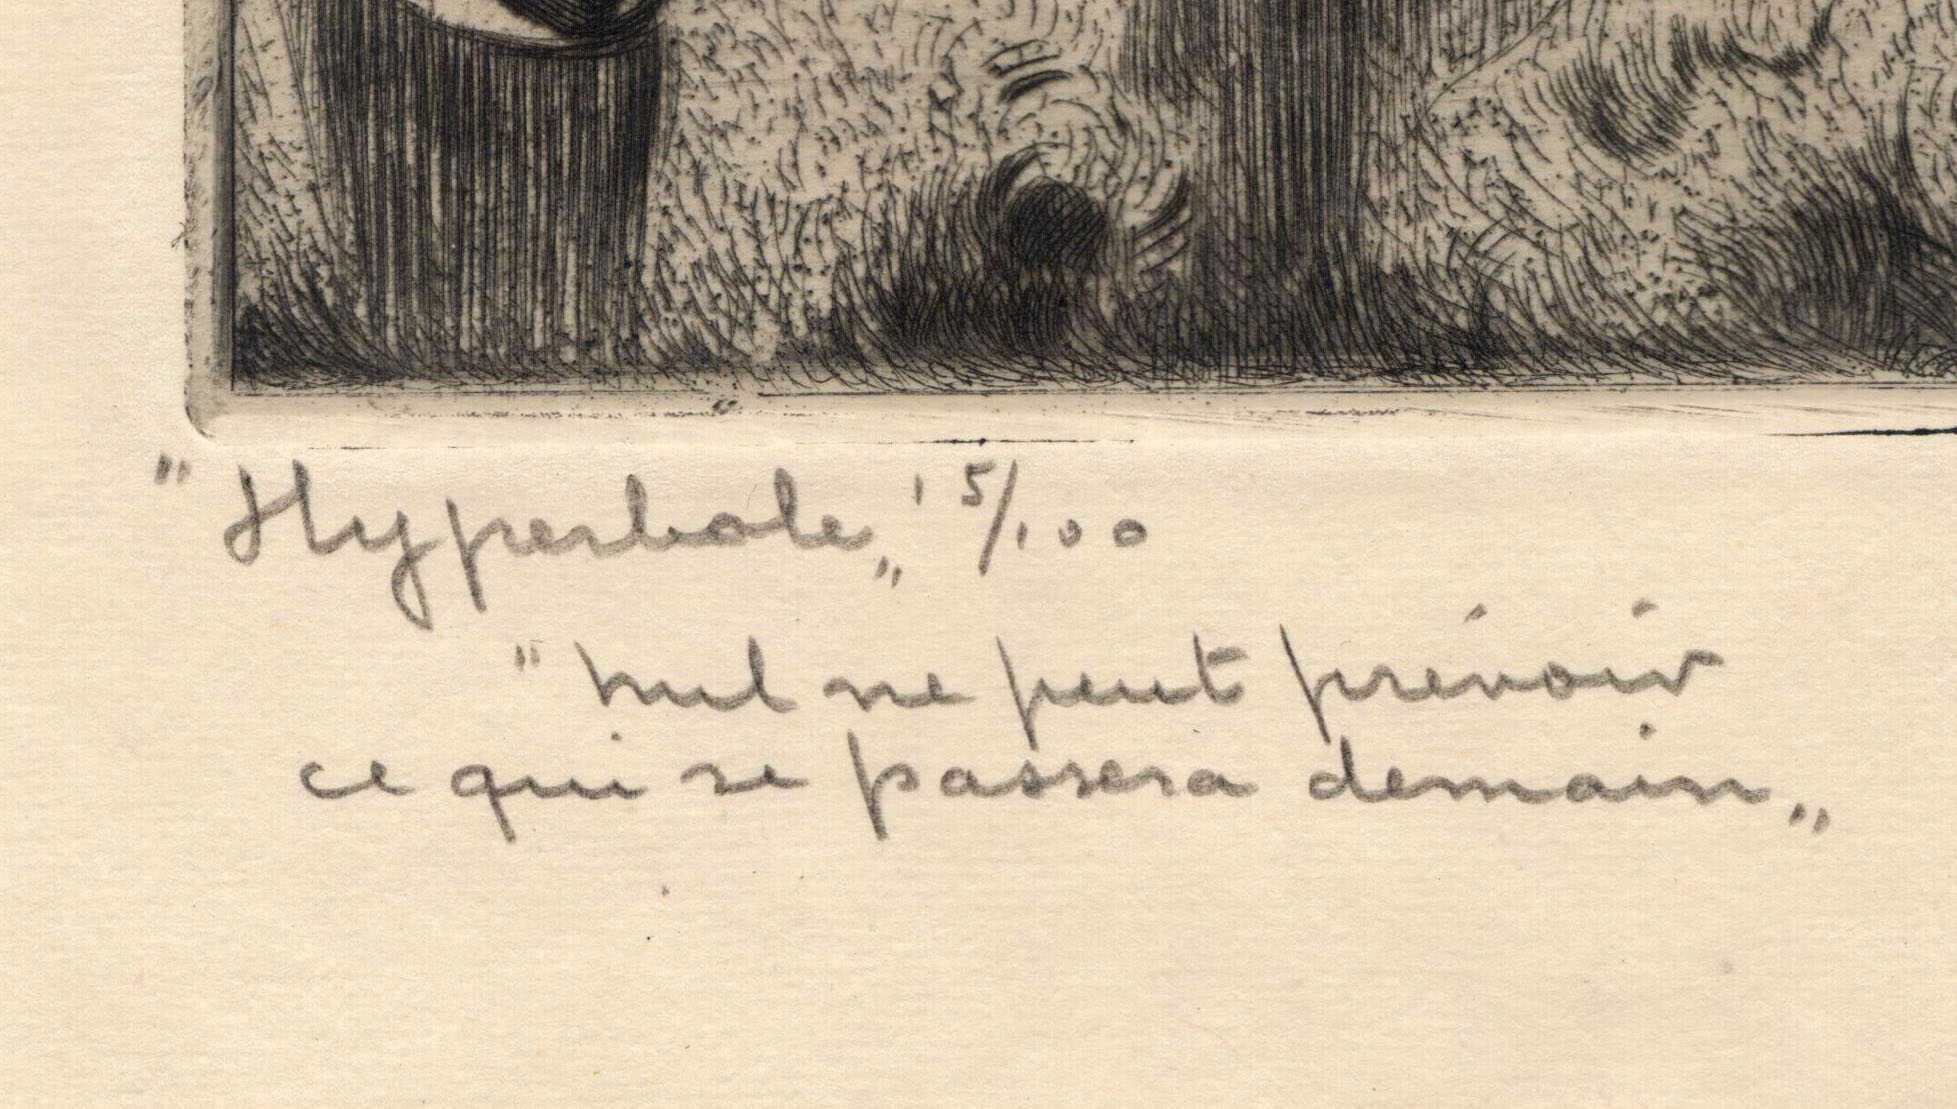 "Hyperbole„ 15/100
"nul ne peut prévoir
ce qui se passera demain„